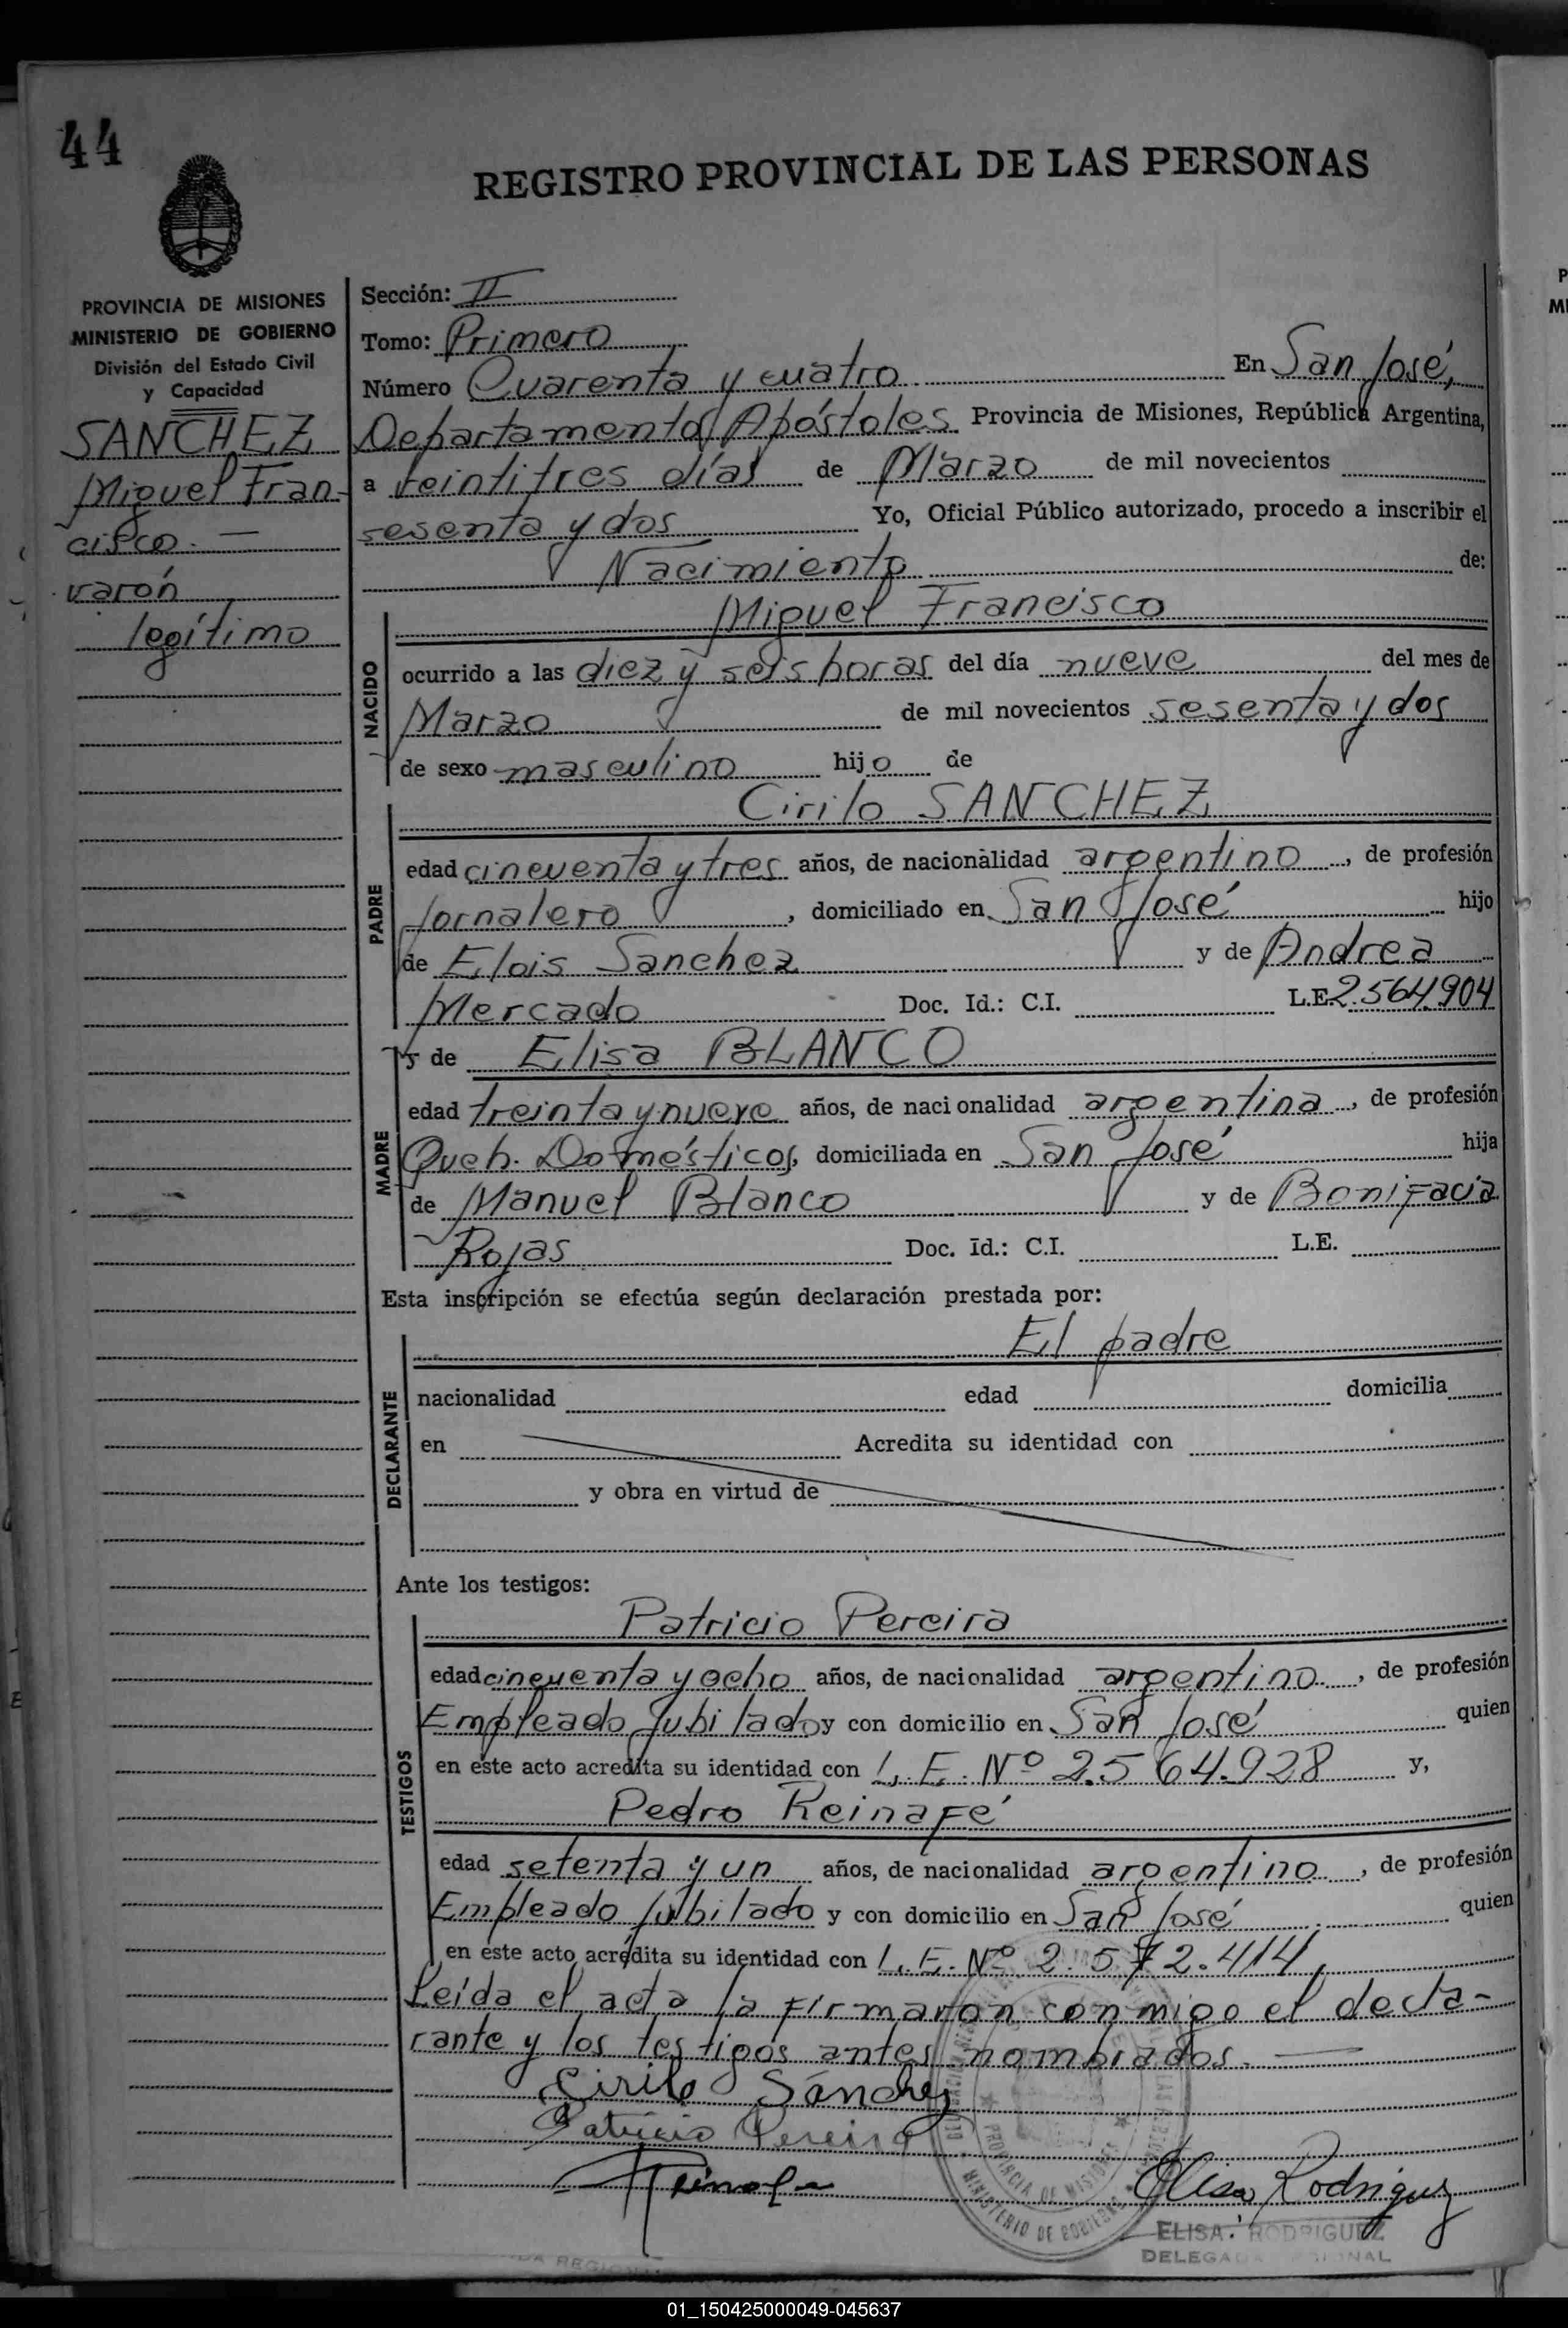 44
REGISTRO PROVINCIAL DE LAS PERSONAS
PROVINCIA DE MISIONES
MINISTERIO DE GOBIERNO
División del Estado Civil
y Capacidad
SANCHEZ
Miguel Fran-
cisco. —
varón
legítimo
Sección: II
Tomo: Primero
Número Cuarenta y cuatro En San José,
Departamento Apóstoles Provincia de Misiones, República Argentina,
a veintitres días de Marzo de mil novecientos
sesenta y dos Yo, Oficial Público autorizado, procedo a inscribir el
Nacimiento de:
Miguel Francisco
NACIDO
ocurrido a las diez y seis horas del día nueve del mes de
Marzo de mil novecientos sesenta y dos
de sexo masculino hijo de
Cirilo SANCHEZ
PADRE
edad cincuenta y tres años, de nacionalidad argentino, de profesión
Jornalero, domiciliado en San José hijo
de Elois Sanchez y de Andrea
Mercado Doc. Id.: C.I. L.E. 2.564.904
y de Elisa BLANCO
MADRE
edad treinta y nueve años, de nacionalidad argentina, de profesión
Queh. Domésticos, domiciliada en San José hija
de Manuel Blanco y de Bonifacia
Rojas Doc. Id.: C.I. L.E.
Esta inscripción se efectúa según declaración prestada por:
El padre
DECLARANTE
nacionalidad edad domicilia
en Acredita su identidad con
y obra en virtud de
Ante los testigos:
Patricio Pereira
TESTIGOS
edad cincuenta y ocho años, de nacionalidad argentino, de profesión
Empleado Jubilado y con domicilio en San José quien
en este acto acredita su identidad con L.E. Nº 2.564.928 y,
Pedro Reinafé
edad setenta y un años, de nacionalidad argentino, de profesión
Empleado Jubilado y con domicilio en San José quien
en este acto acredita su identidad con L.E. Nº 2.572.414,
Leída el acta la firmaron conmigo el decla-
rante y los testigos antes nombrados. —
Cirilo Sánchez
Patricio Pereira
Elisa Rodriguez
PROVINCIA DE MISIONES
MINISTERIO DE GOBIERNO
ELISA RODRIGUEZ
DELEGADA
01_150425000049-045637